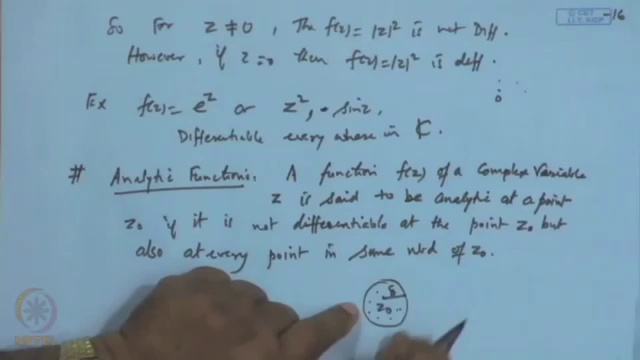 So For z ≠ 0, The f(z) = |z|² is not Diff.
However, if z = 0 then f(z) = |z|² is diff.
0
Ex f(z) = e^z or z², sin z,
Differentiable every where in ℂ.
# Analytic Function: A function f(z) of a Complex Variable
z is said to be analytic at a point
z₀ if it is not differentiable at the point z₀ but
also at every point in some nbd of z₀.
δ
z₀